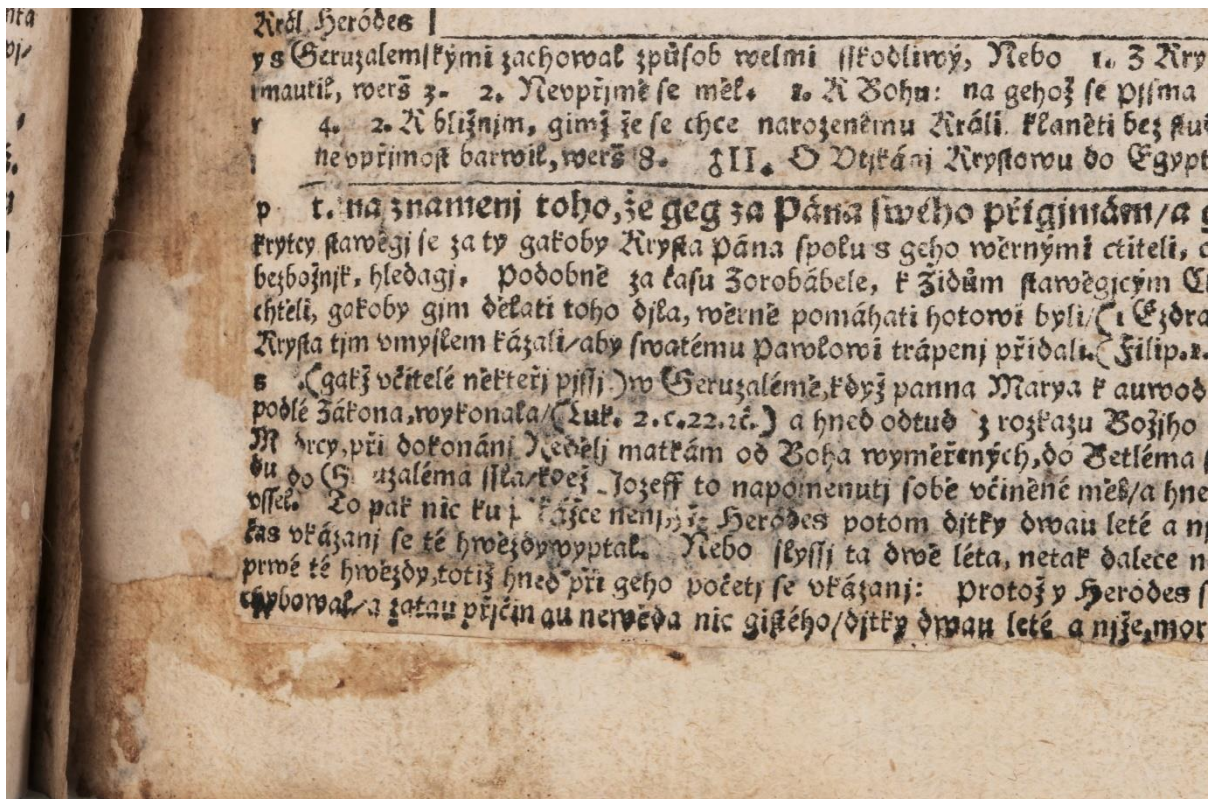 Král Heródes
y s Geruzalemskými zachowal způsob welmi sskodliwý, Nebo 1. Z Kry
rmautil, werš 3. 2. Nevpřjmě se měl. 1. K Bohu: na gehož se pjsma
4. 2. K bližnjm, gimž že se chce narozenému Králi klaněti bez
nevpřjmost barwil, werš 8. III. O Vtjkánj Krystowu do Egypt
na znamenj toho, že geg za Pána swého přigjmám/a g
krytcy stawěgj se za ty gakoby Krysta Pána spolu s geho wěrnými ctiteli,
bezbožnjk, hledagj. Podobně za času Zorobábele, k Židům stawěgjcým
chtěli, gakoby gim dělati toho djla, wěrně pomáhati hotowi byli/(1 Ezdra
Krysta tjm vmyslem kázali/aby swatému Pawlowi trápenj přidali.(Filip.1.
s .(gakž včitelé někteřj pjssj) w Geruzalémě, když panna Marya k auwod
podlé Zákona, wykonala/(Luk. 2. c.22. zč.) a hned odtud z rozkazu Božjho
Mdrcy, při dokonánj Nedělj matkám od Boha wyměřených, do Betléma
du do Geruzaléma ssla/ Jozeff to napomenutj sobě včiněné měl/a hne
vssel. To pak nic ku překážce nenj, že Heródes potom djtky dwau leté a nj
čas vkázanj se té hwězdy wyptal. Nebo slyssj ta dwě léta, netak dalece n
prwé té hwězdy, totiž hned při geho početj se vkázanj: Protož y Heródes s
chybowal/a zatau přjčinau newěda nic gistého/djtky dwau leté a njže, mor